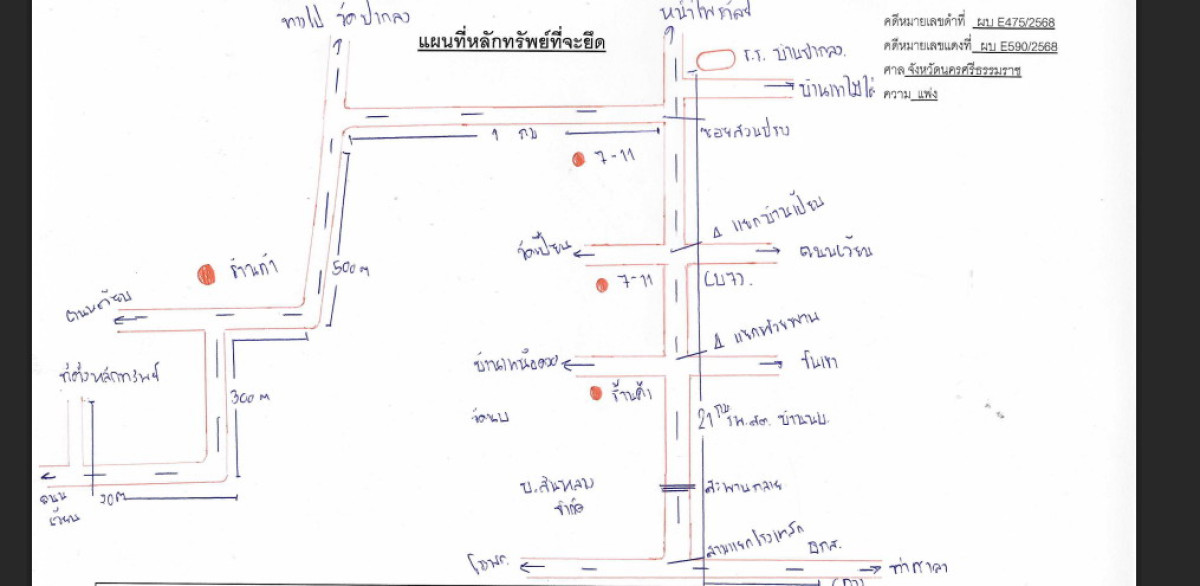 ทางไป วัดปากลง
หน้าไพรัลย์
คดีหมายเลขดำที่ ผบ E475/2568
แผนที่หลักทรัพย์ที่จะยึด
คดีหมายเลขแดงที่ ผบ E590/2568
ร.ร. บ้านปากลง
ศาล จังหวัดนครศรีธรรมราช
บ้านเขาไม้ไผ่
ความ แพ่ง
1 กม
ซอยสวนปราง
7-11
แยกบ้านเปียน
วัดเปียน
ถนนเวียน
ร้านค้า
500 m
7-11
แยกห้วยพาน
บ้านเหนือคลอง
ที่ตั้งหลักทรัพย์
300 m
ร้านค้า
วัดนบ
21 กม
รพ.สต. บ้านนบ
สะพานกลาย
จำกัด
ถนน
30m
สามแยกโรงเหล็ก
ธกส.
ท่าศาลา